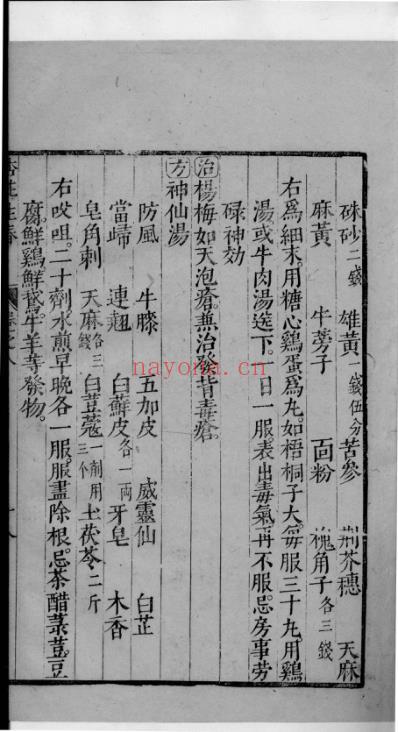 硃砂二錢 雄黃一錢伍分 苦參 荆芥穗 天麻
麻黃 牛蒡子 面粉 槐角子各三錢
右爲細末用糖心鷄蛋爲丸如梧桐子大每服三十九用鷄
湯或牛肉湯送下一日一服表出毒氣再不服忌房事勞
碌神効
治楊梅如天泡瘡兼治發背毒瘡
方神仙湯
防風 牛膝 五加皮 威靈仙 白芷
當歸 連翹 白蘚皮各一兩 牙皂 木香
皂角刺 天麻各三錢 白荳蔻一劑用三个 土茯苓二斤
右㕮咀二十劑水煎早晚各一服服盡除根忌茶醋菉荳豆
腐鮮鷄鮮鵝牛羊等發物
卷之八
nayona.cn